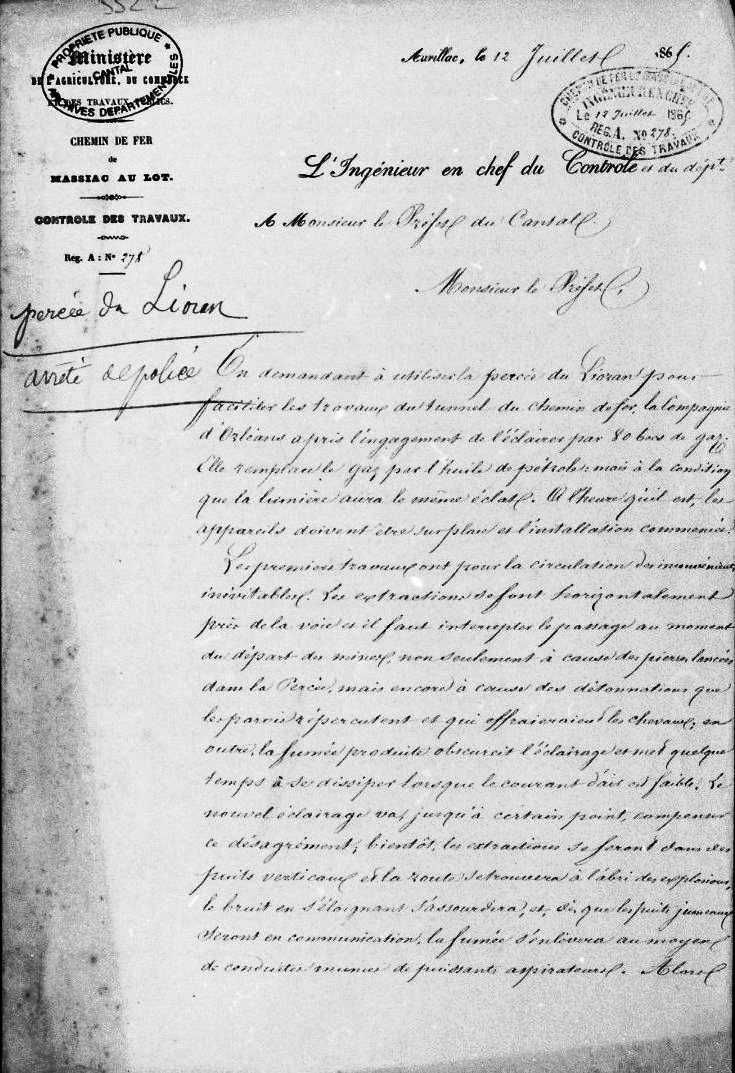 3522
Ministère
DE L'AGRICULTURE, DU COMMERCE
ET DES TRAVAUX PUBLICS.
PROPRIETE PUBLIQUE
CANTAL
ARCHIVES DEPARTEMENTALES
CHEMIN DE FER
de
MASSIAC AU LOT.
CONTROLE DES TRAVAUX.
Reg. A : N° 278
percée du Lioran
arrêté de police
Aurillac, le 12 Juillet 1865.
CHEMIN DE FER DE MASSIAC AU LOT
INGÉNIEUR EN CHEF
Le 12 Juillet 1865
REG. A. No 278.
CONTRÔLE DES TRAVAUX
L'Ingénieur en chef du Contrôle et du dépt.
A Monsieur le Préfet du Cantal.
Monsieur le Préfet,
En demandant à utiliser la percée du Lioran pour
faciliter les travaux du tunnel du chemin de fer, la Compagnie
d'Orléans a pris l'engagement de l'éclairer par 80 becs de gaz.
Elle remplace le gaz par l'huile de pétrole; mais à la condition
que la lumière aura le même éclat. A l'heure qu'il est, les
appareils doivent être sur place et l'installation commencée.
Les premiers travaux ont pour la circulation des inconvénients
inévitables. Les extractions se font horizontalement
près de la voie et il faut intercepter le passage au moment
du départ des mines, non seulement à cause des pierres lancées
dans la Percée, mais encore à cause des détonnations que
les parois répercutent et qui effraieraient les chevaux; en
outre, la fumée produite obscurcit l'éclairage et met quelque
temps à se dissiper lorsque le courant d'air est faible. Le
nouvel éclairage va, jusqu'à certain point, compenser
ce désagrément; bientôt, les extractions se feront dans des
puits verticaux et la route se trouvera à l'abri des explosions,
le bruit en s'éloignant s'assourdira, et, dès que les puits jumeaux
seront en communication, la fumée s'enlèvera au moyen
de conduites munies de puissants aspirateurs. Alors